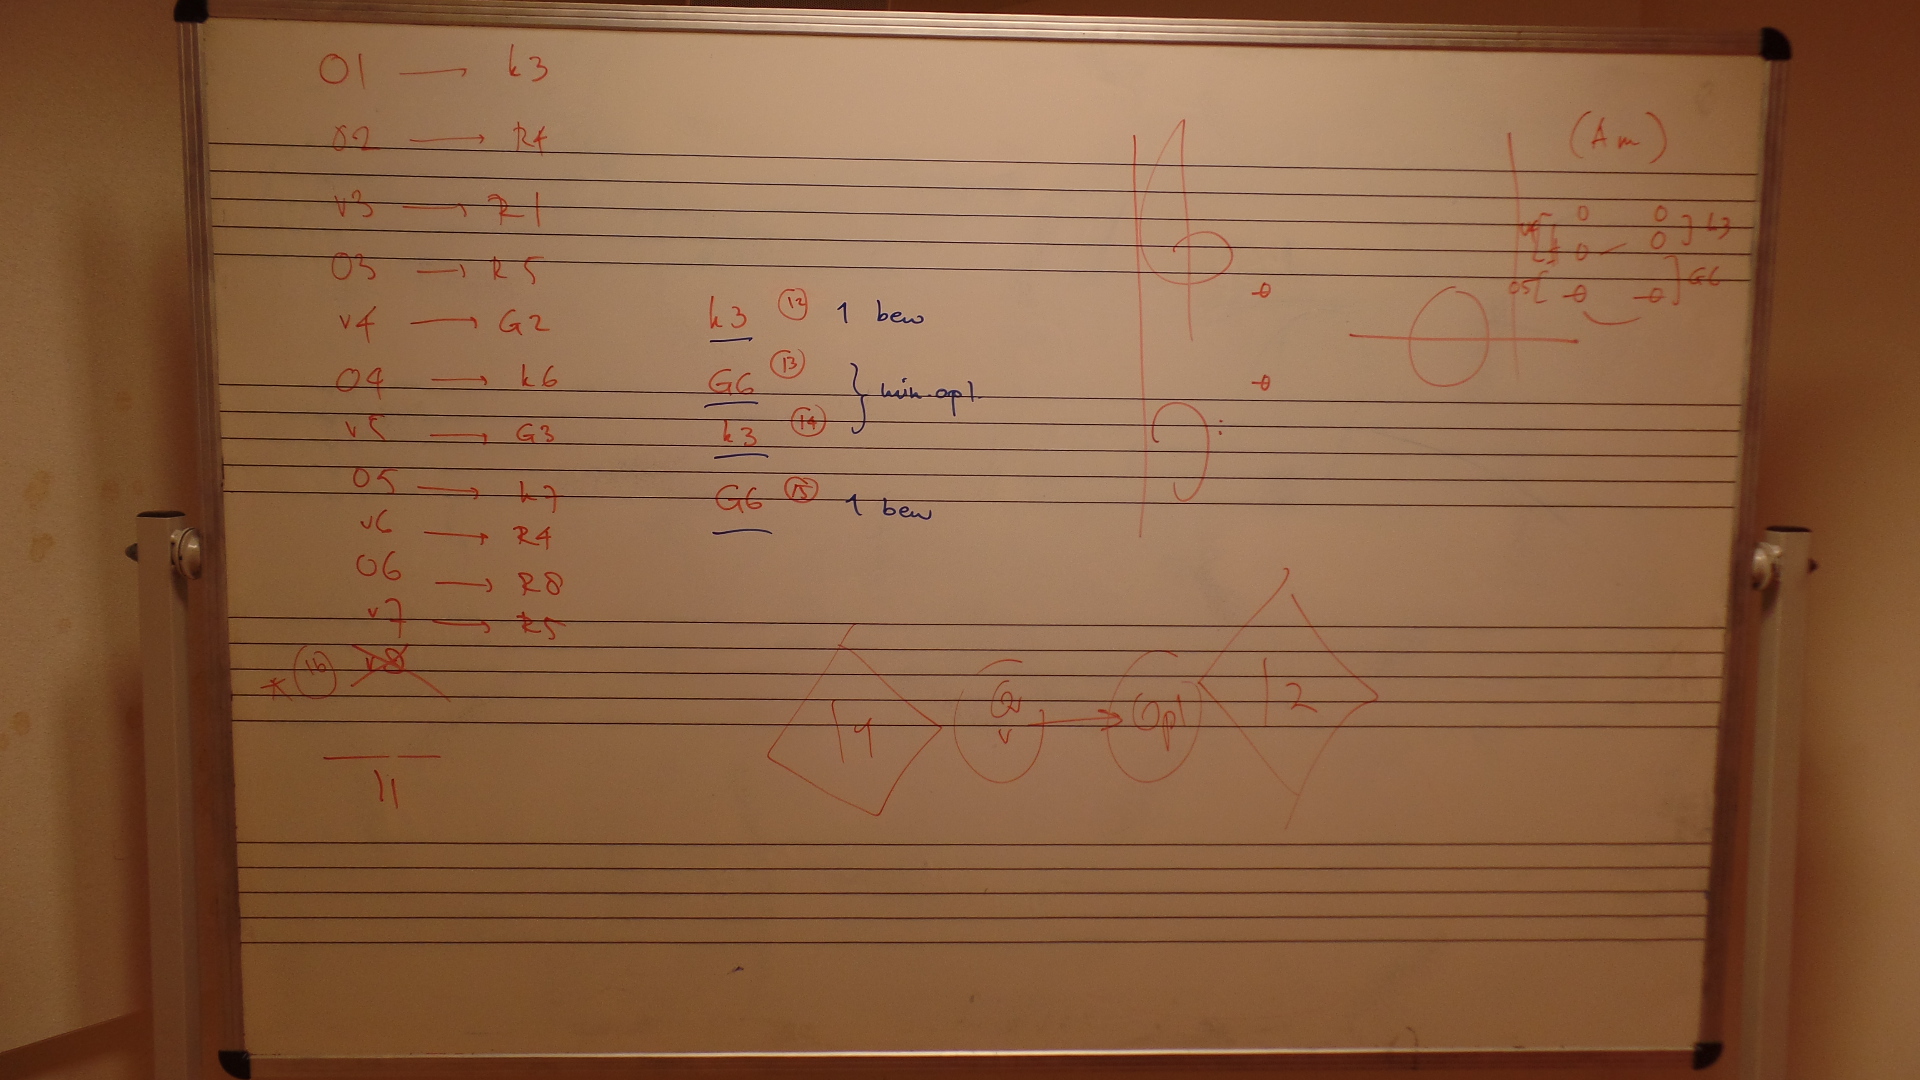 O1 → k3
O2 → R4
v3 → R1
O3 → R5
v4 → G2
O4 → k6
v5 → G3
O5 → k7
v6 → R4
O6 → R8
v7 → R5
* 16 v8
11
k3 12 1 bew
G6 13
k3 14
} min. opl.
G6 15 1 bew
(Am)
] k3
O5 [
] G6
14
v
→
Opl
12